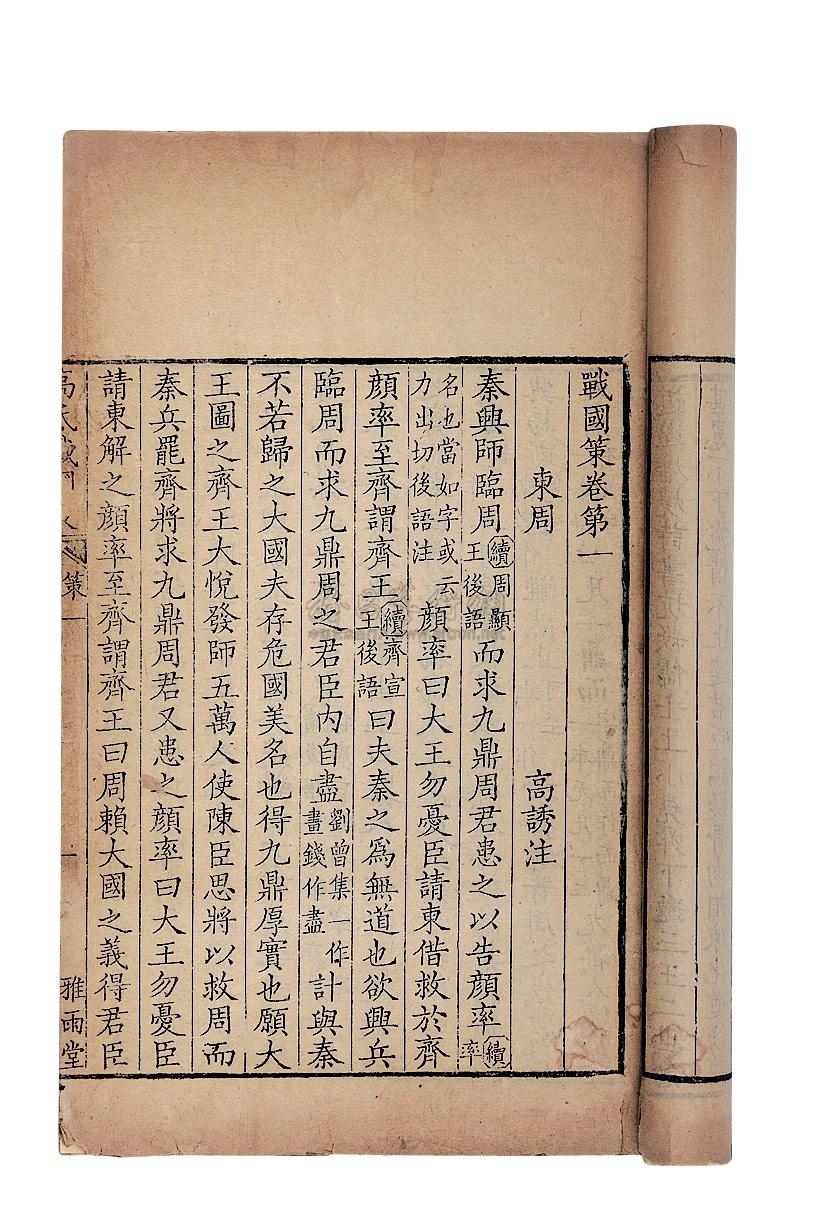 戰國策卷第一
東周 高誘注
秦興師臨周續周顯王後語而求九鼎周君患之以告顏率續率
名也當如字或云力出切後語注顏率曰大王勿憂臣請東借救於齊
顏率至齊謂齊王續齊宣王後語曰夫秦之爲無道也欲興兵
臨周而求九鼎周之君臣內自盡劉曾集一作畫錢作盡計與秦
不若歸之大國夫存危國美名也得九鼎厚實也願大
王圖之齊王大悅發師五萬人使陳臣思將以救周而
秦兵罷齊將求九鼎周君又患之顏率曰大王勿憂臣
請東解之顏率至齊謂齊王曰周賴大國之義得君臣
高氏戰國策一 一 雅雨堂